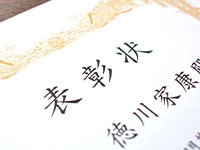 表彰状
徳川家康殿